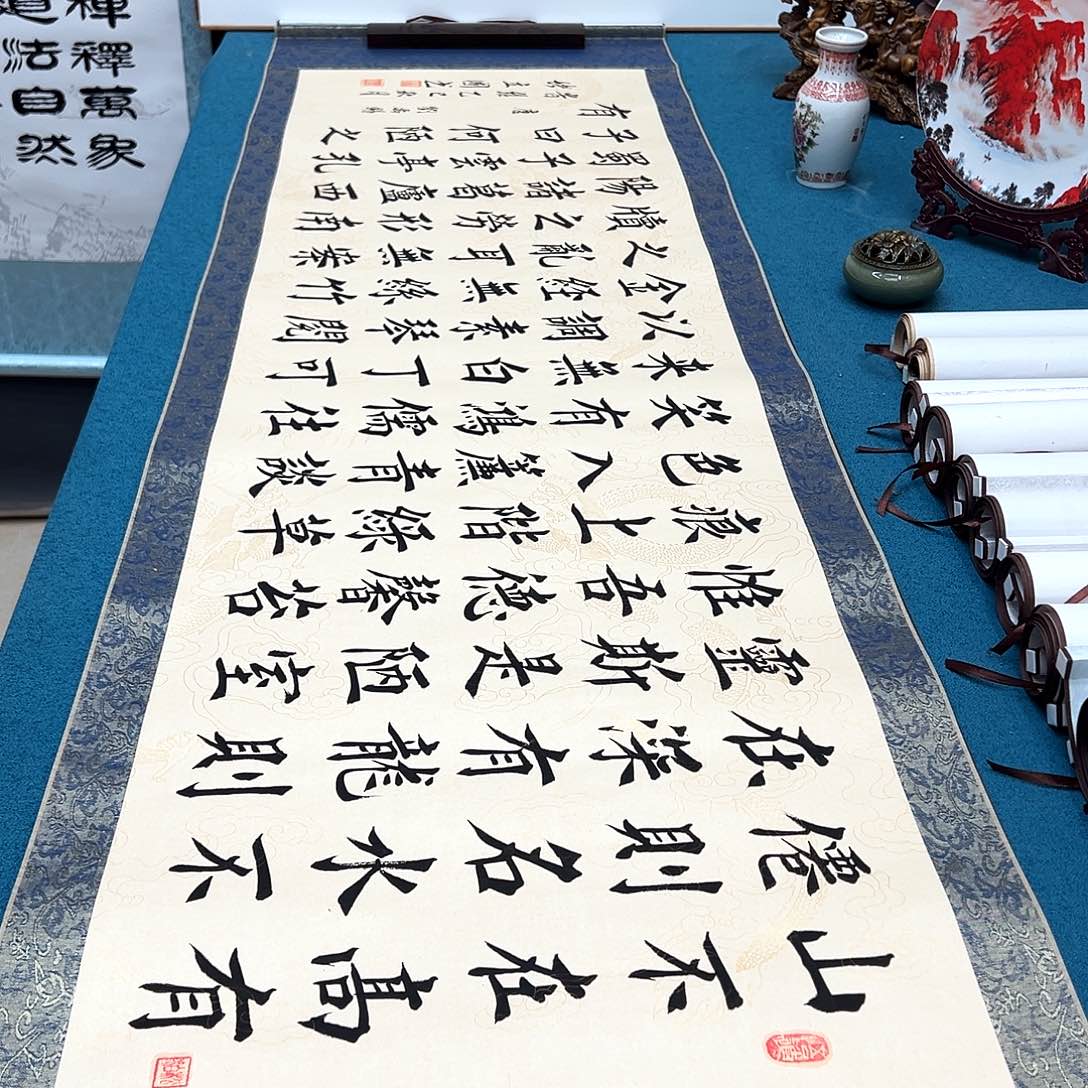 山不在高有
僊則名水不
在深有龍則
靈斯是陋室
惟吾德馨苔
痕上階綠草
色入簾青談
笑有鴻儒往
来無白丁可
以調素琴閱
金經無絲竹
之亂耳無案
牘之勞形南
陽諸葛廬西
蜀子雲亭孔
子曰何陋之
有
唐劉禹錫
禪釋萬象
道法自然